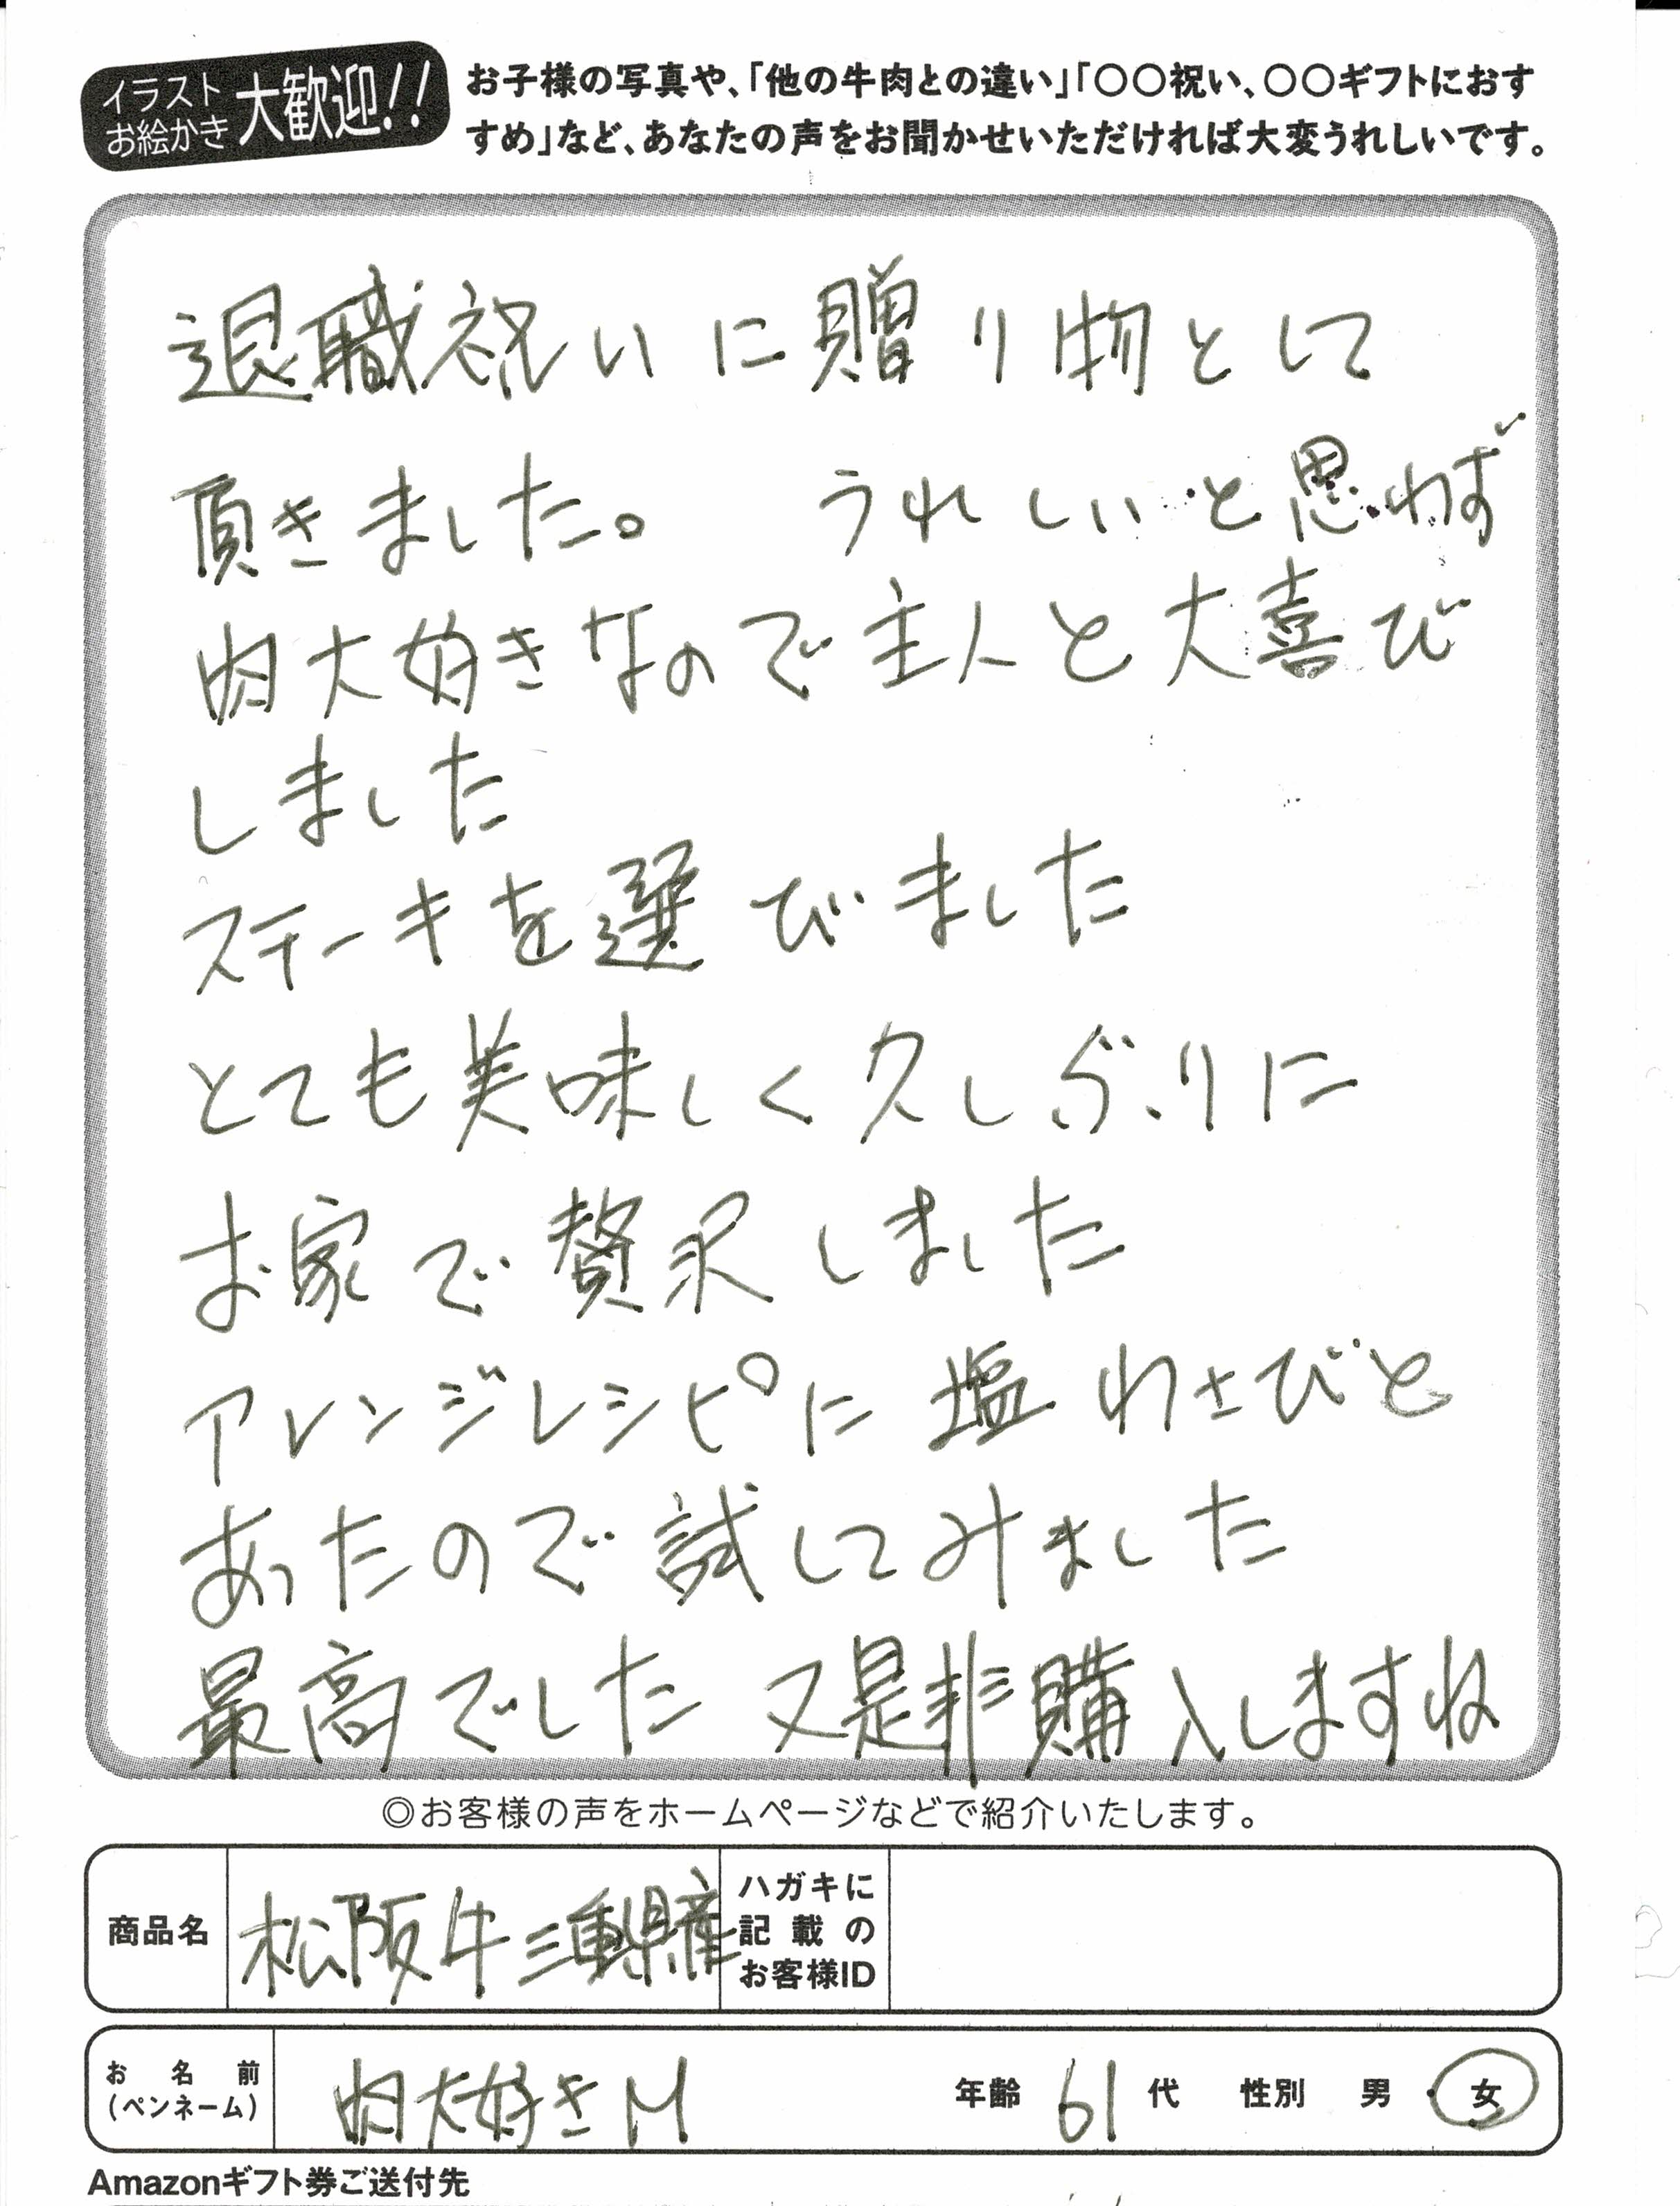 イラスト
お絵かき
大歓迎!!
お子様の写真や、「他の牛肉との違い」「○○祝い、○○ギフトにおす
すめ」など、あなたの声をお聞かせいただければ大変うれしいです。
退職祝いに贈り物として
頂きました。 うれしいと思わず
肉大好きなので主人と大喜び
しました
ステーキを選びました
とても美味しく久しぶりに
お家で贅沢しました
アレンジレシピに塩わさびと
あったので試してみました
最高でした 又是非購入しますね
◎お客様の声をホームページなどで紹介いたします。
商品名 松阪牛三重県産
ハガキに
記載の
お客様ID
お名前
(ペンネーム)
肉大好きM
年齢 61代 性別 男 女
Amazonギフト券ご送付先